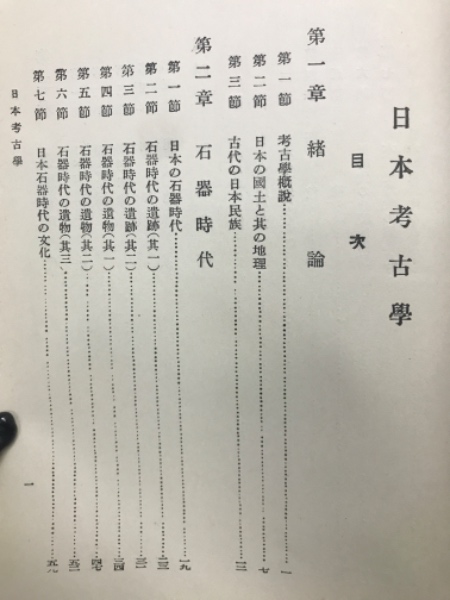 日本考古學
目次
第一章 緒論
第一節 考古學概說 一
第二節 日本の國土と其の地理 七
第三節 古代の日本民族 一三
第二章 石器時代
第一節 日本の石器時代 一九
第二節 石器時代の遺跡(其一) 二三
第三節 石器時代の遺跡(其二) 三一
第四節 石器時代の遺物(其一) 三四
第五節 石器時代の遺物(其二) 四七
第六節 石器時代の遺物(其三) 五二
第七節 日本石器時代の文化 五八
日本考古學
一